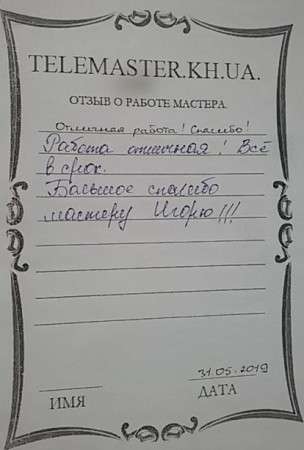 TELEMASTER.KH.UA.
ОТЗЫВ О РАБОТЕ МАСТЕРА.
Отличная работа! Спасибо!
Работа отличная! Всё
в срок.
Большое спасибо
мастеру Игорю!!!
31.05.2019
ИМЯ
ДАТА